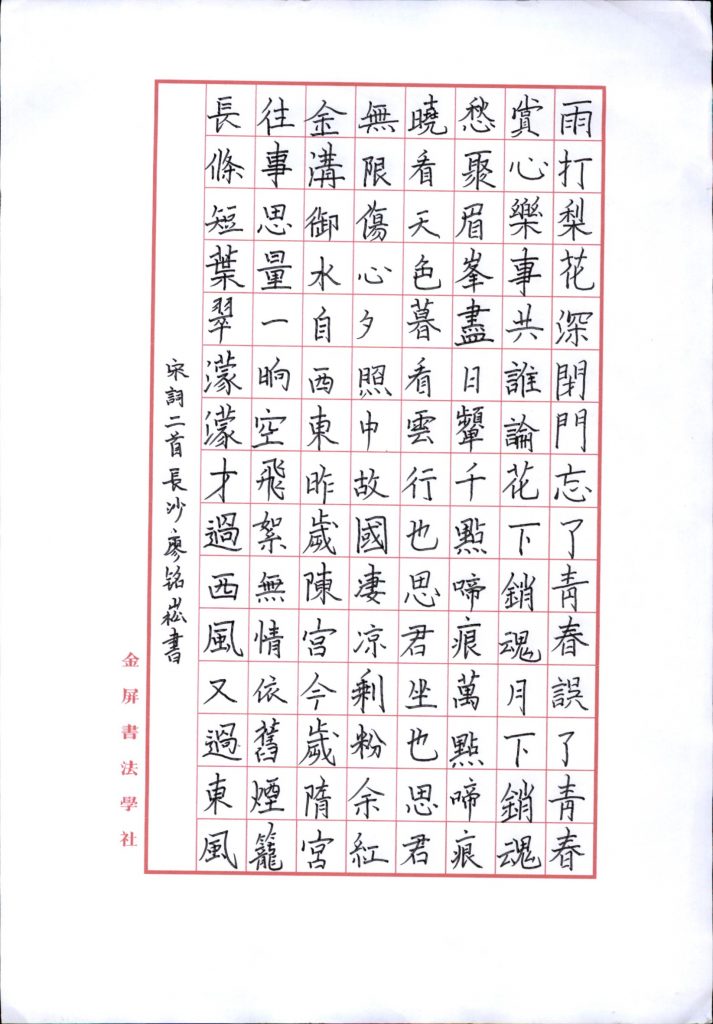 雨打梨花深閉門忘了青春誤了青春
賞心樂事共誰論花下銷魂月下銷魂
愁聚眉峯盡日顰千點啼痕萬點啼痕
曉看天色暮看雲行也思君坐也思君
無限傷心夕照中故國凄凉剩粉余紅
金溝御水自西東昨歲陳宮今歲隋宮
往事思量一晌空飛絮無情依舊煙籠
長條短葉翠濛濛才過西風又過東風
宋詞二首長沙廖銘崧書
金屏書法學社